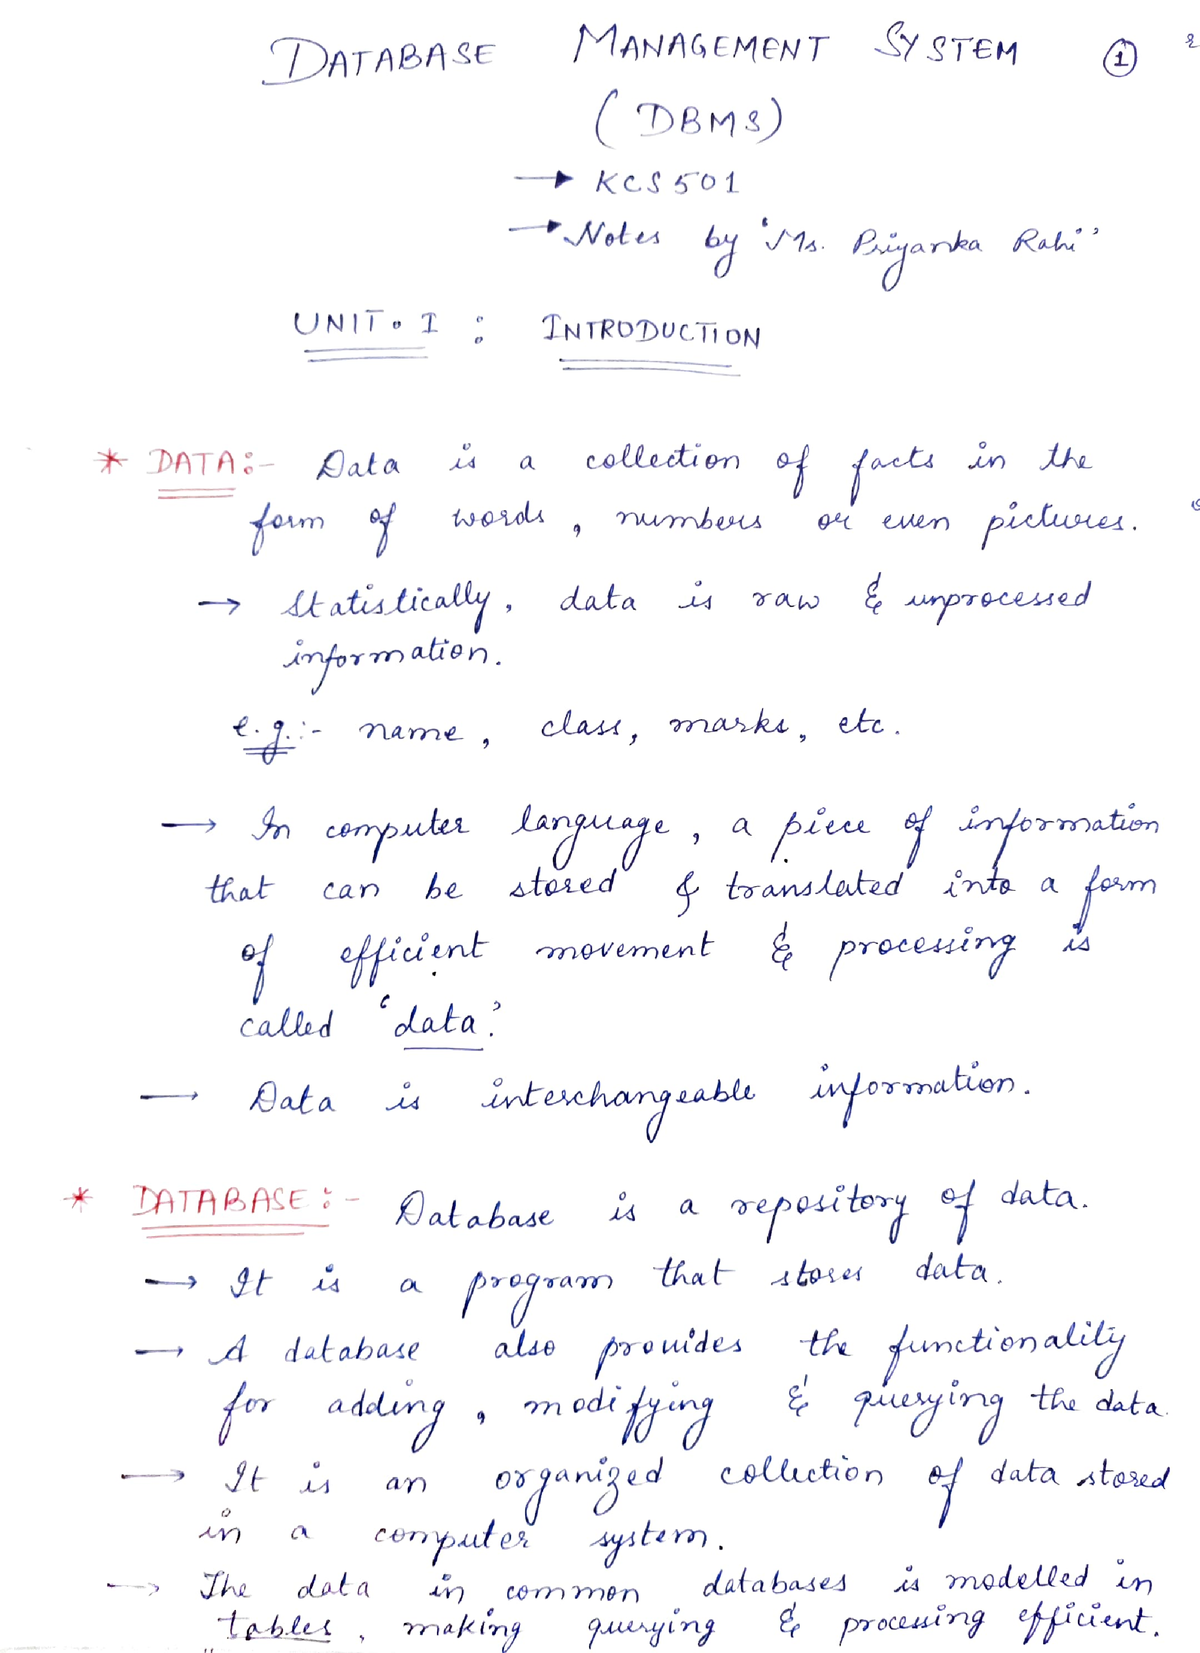 DATABASE MANAGEMENT SYSTEM ①
(DBMS)
→ KCS501
→ Notes by "Ms. Priyanka Rahi"
UNIT. I : INTRODUCTION
* DATA:- Data is a collection of facts in the
form of words, numbers or even pictures.
→ Statistically, data is raw & unprocessed
information.
e.g.:- name, class, marks, etc.
→ In computer language, a piece of information
that can be stored & translated into a form
of efficient movement & processing is
called 'data'.
— Data is interchangeable information.
* DATABASE:- Database is a repository of data.
→ It is a program that stores data.
→ A database also provides the functionality
for adding, modifying & querying the data.
→ It is an organized collection of data stored
in a computer system.
→ The data in common databases is modelled in
tables, making querying & processing efficient.